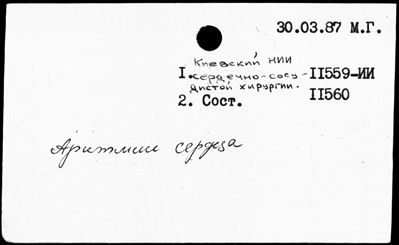 30.03.87 М.Г.
Киевский НИИ
1. сердечно-сосу- II559-ИИ
дистой хирургии.
2. Сост. II560
Аритмии сердца